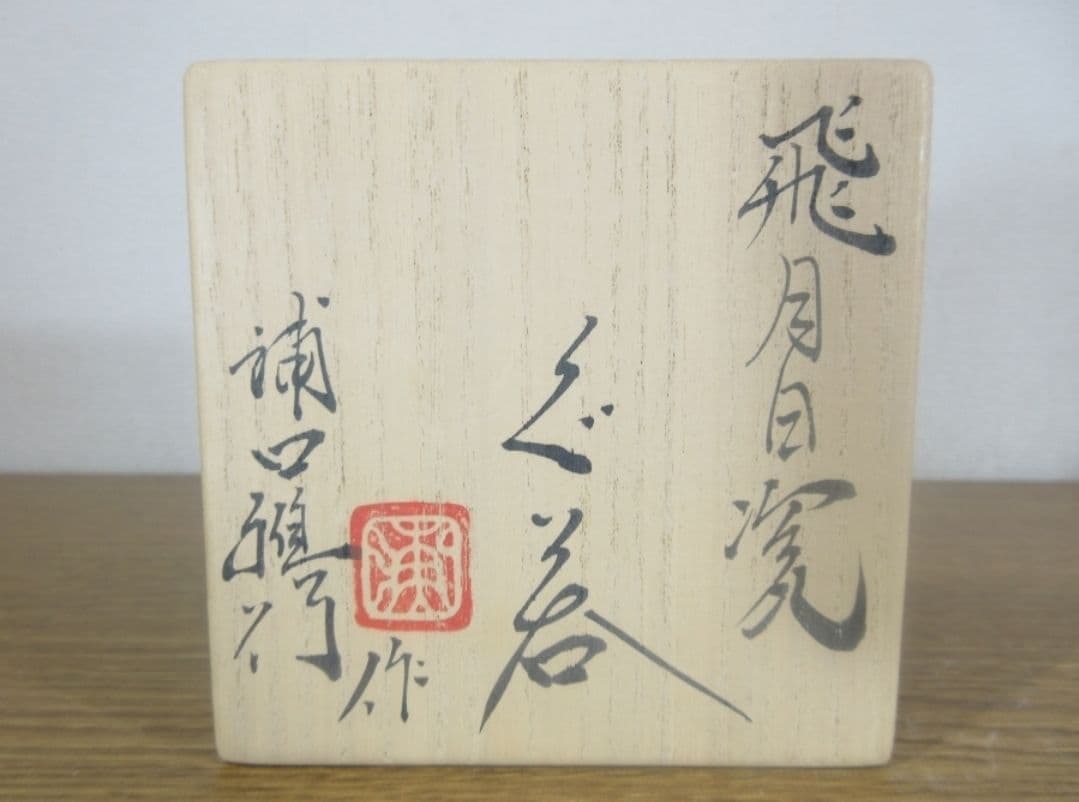 飛月白瓷
ぐい呑
浦口雅行
作